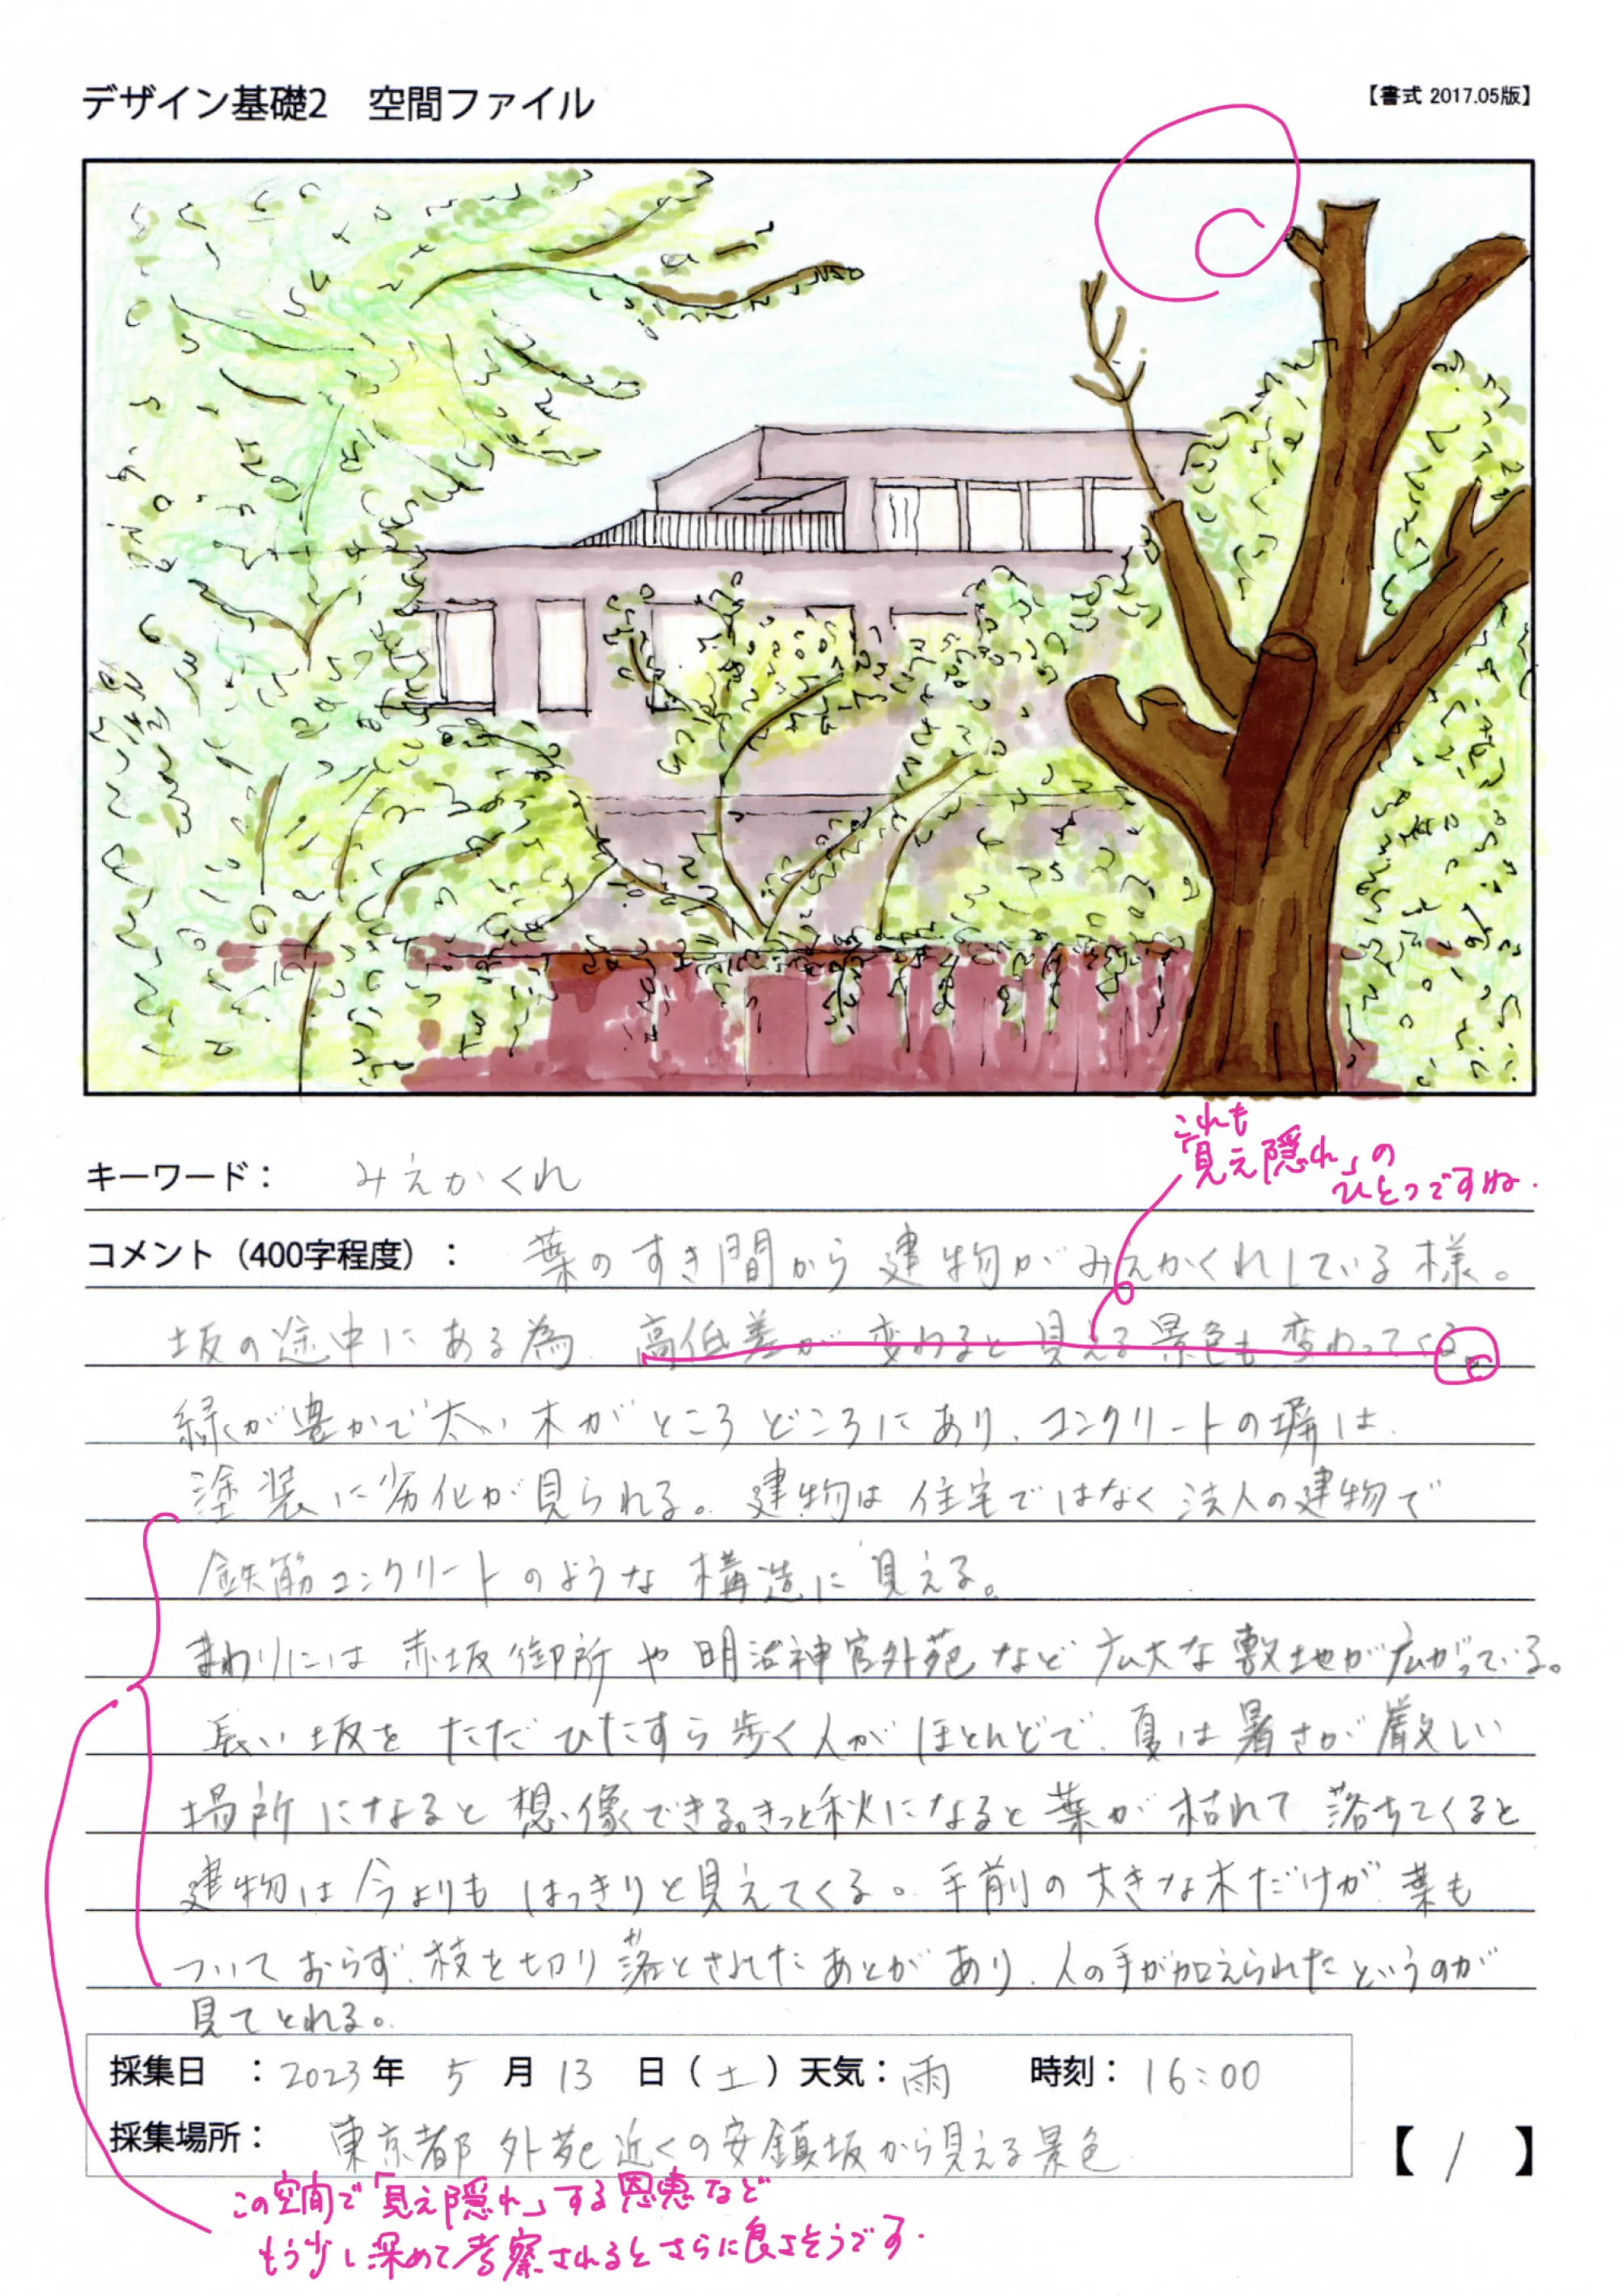 デザイン基礎2　空間ファイル
【書式 2017.05版】
これも
「見え隠れ」の
ひとつですね.
キーワード：　みえかくれ
コメント（400字程度）：　葉のすき間から建物がみえかくれしている様。
坂の途中にある為、高低差が変わると見える景色も変わってくる。
緑が豊かで太い木がところどころにあり、コンクリートの塀は、
塗装に劣化が見られる。建物は住宅ではなく法人の建物で
鉄筋コンクリートのような構造に見える。
まわりには赤坂御所や明治神宮外苑など広大な敷地が広がっている。
長い坂をただひたすら歩く人がほとんどで、夏は暑さが厳しい
場所になると想像できる。きっと秋になると葉が枯れて落ちてくると
建物は今よりもはっきりと見えてくる。手前の大きな木だけが葉も
ついておらず、枝を切り落とされたあとがあり、人の手が加えられたというのが
見てとれる。
採集日　：2023年　5　月　13　日（土）天気：雨　時刻：16:00
採集場所：　東京都　外苑近くの安鎮坂から見える景色
【　1　】
この空間で「見え隠れ」する恩恵など
もう少し深めて考察されるとさらに良さそうです.